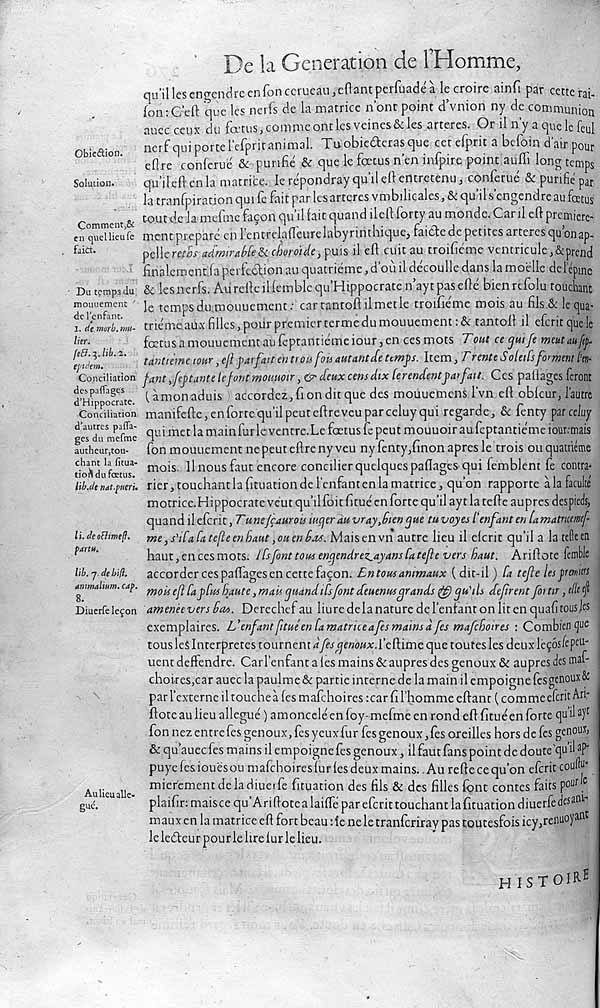 De la Generation de l'Homme,
qu'il les engendre en ſon cerueau, eſtant perſuadé à le croire ainſi par cette rai-
ſon: C'eſt que les nerfs de la matrice n'ont point d'vnion ny de communion
auec ceux du fœtus, comme ont les veines & les arteres. Or il n'y a que le ſeul
nerf qui porte l'eſprit animal. Tu obiecteras que cet eſprit a beſoin d'air pour
Obiection.
eſtre conſerué & purifié & que le fœtus n'en inſpire point auſſi long temps
qu'il eſt en la matrice. Ie répondray qu'il eſt entretenu, conſerué & purifié par
Solution.
la tranſpiration qui ſe fait par les arteres vmbilicales, & qu'il s'engendre au fœtus
tout de la meſme façon qu'il fait quand il eſt ſorty au monde. Car il eſt premiere-
Comment, &
en quel lieu ſe
faict.
ment preparé en l'entrelaſſeure labyrinthique, faicte de petites arteres qu'on ap-
pelle rechs admirable & choroide, puis il eſt cuit au troiſiéme ventricule, & prend
finalement ſa perfection au quatriéme, d'où il découlle dans la moëlle de l'épine
& les nerfs. Au reſte il ſemble qu'Hippocrate n'ayt pas eſté bien reſolu touchant
Du temps du
mouuement
de l'enfant.
1. de morb. mu-
lier.
ſect. 3. lib. 2.
epidem.
le temps du mouuement: car tantoſt il met le troiſiéme mois au fils & le qua-
triéme aux filles, pour premier terme du mouuement: & tantoſt il eſcrit que le
fœtus a mouuement au ſeptantiéme iour, en ces mots Tout ce qui ſe meut au ſep-
tantiéme iour, eſt parfait en trois fois autant de temps. Item, Trente Soleils forment l'en-
fant, ſeptante le font mouuoir, & deux cens dix le rendent parfait. Ces paſſages ſeront
Conciliation
des paſſages
d'Hippocrate.
(à mon aduis accordez, ſi on dit que des mouuemens l'vn eſt obſcur, l'autre
manifeſte, en ſorte qu'il peut eſtre veu par celuy qui regarde, & ſenty par celuy
qui met la main ſur le ventre. Le fœtus ſe peut mouuoir au ſeptantiéme iour: mais
Conciliation
d'autres paſſa-
ges du meſme
autheur, tou-
chant la ſitua-
tion du fœtus.
lib. de nat. pueri.
ſon mouuement ne peut eſtre ny veu ny ſenty, ſinon apres le trois ou quatriéme
mois. Il nous faut encore concilier quelques paſſages qui ſemblent ſe contra-
rier, touchant la ſituation de l'enfant en la matrice, qu'on rapporte à la faculté
motrice. Hippocrate veut qu'il ſoit ſitué en ſorte qu'il ayt la teſte aupres des pieds,
quand il eſcrit, Tu ne ſçaurois iuger au vray, bien que tu voyes l'enfant en la matrice meſ-
me, s'il a ſa teſte en haut, ou en bas. Mais en vn autre lieu il eſcrit qu'il a la teſte en
li. de octimeſt.
partu.
haut, en ces mots. Ils ſont tous engendrez ayans la teſte vers haut. Ariſtote ſemble
accorder ces paſſages en cette façon. En tous animaux (dit-il) la teſte les premiers
lib. 7. de hiſt.
animalium. cap.
8.
mois eſt la plus haute, mais quand ils ſont deuenus grands & qu'ils deſirent ſortir, elle eſt
amenée vers bas. Derechef au liure de la nature de l'enfant on lit en quaſi tous les
Diuerſe leçon
exemplaires. L'enfant ſitué en la matrice a ſes mains à ſes maſchoires: Combien que
tous les Interpretes tournent à ſes genoux. I'eſtime que toutes les deux leçõs ſe peu-
uent deffendre. Car l'enfant a ſes mains & aupres des genoux & aupres des maſ-
choires, car auec la paulme & partie interne de la main il empoigne ſes genoux &
par l'externe il touche à ſes maſchoires: car ſi l'homme eſtant (comme eſcrit Ari-
ſtote au lieu allegué) amoncelé en ſoy-meſme en rond eſt ſitué en ſorte qu'il ayt
ſon nez entre ſes genoux, ſes yeux ſur ſes genoux, ſes oreilles hors de ſes genoux,
& qu'auec ſes mains il empoigne ſes genoux, il faut ſans point de doute qu'il ap-
puye ſes iouës ou maſchoires ſur les deux mains. Au reſte ce qu'on eſcrit couſtu-
mierement de la diuerſe ſituation des fils & des filles ſont contes faits pour le
Au lieu alle-
gué.
plaiſir: mais ce qu'Ariſtote a laiſſé par eſcrit touchant la ſituation diuerſe des ani-
maux en la matrice eſt fort beau: Ie ne le tranſcriray pas toutesfois icy, renuoyant
le lecteur pour le lire ſur le lieu.
HISTOIRE